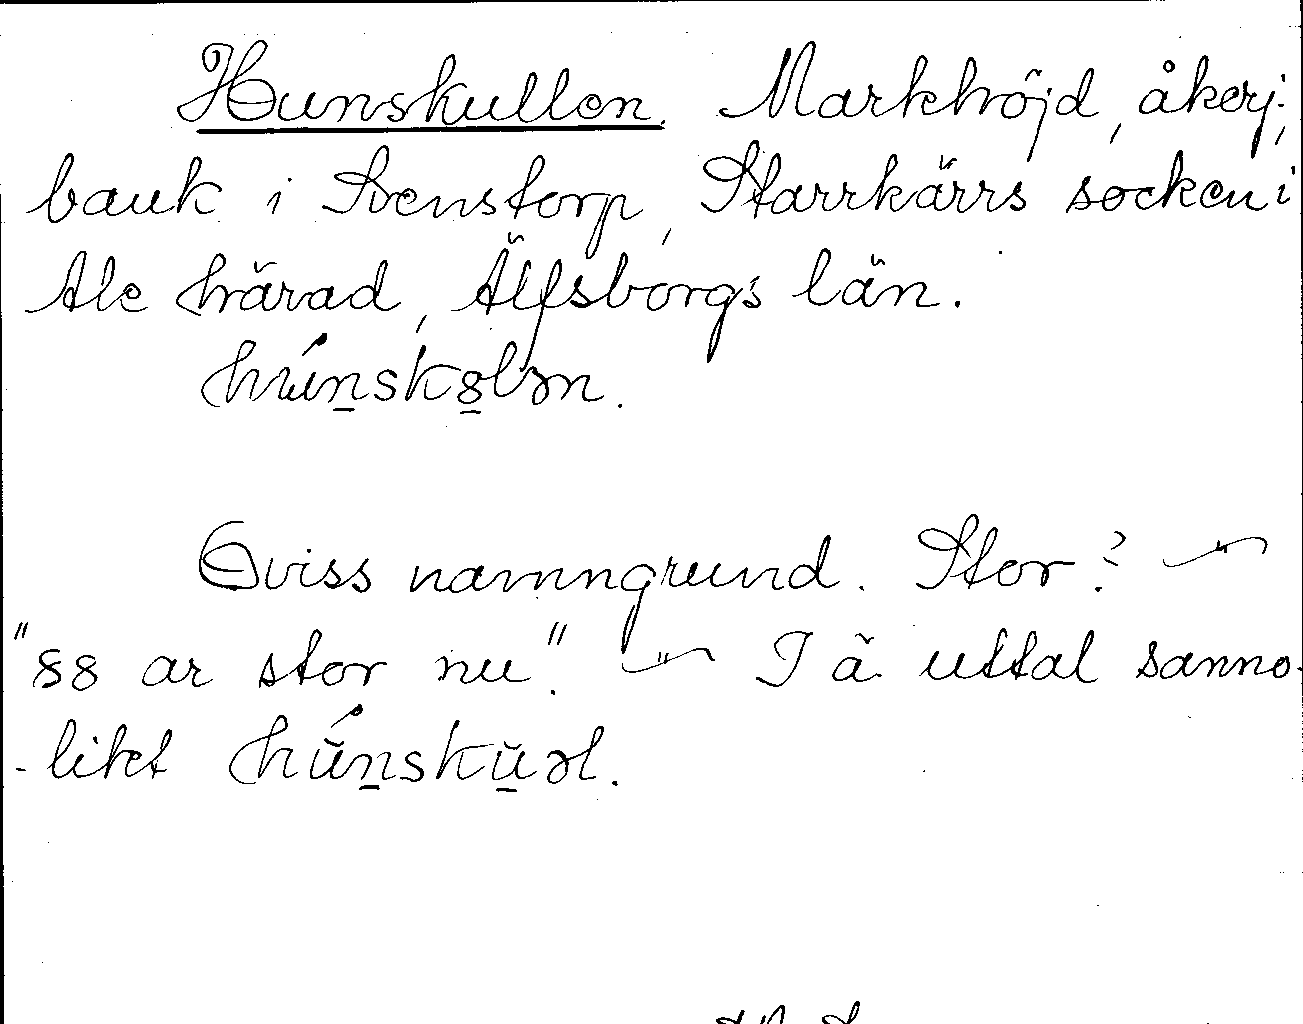 Hunskullen. Markhöjd, åkerj.,
bank i Svenstorp, Starrkärrs socken i
Ale härad, Älfsborgs län.
húnskolən.
Oviss namngrund. Stor? —
"88 ar stor nu." — I ä. uttal sanno-
-likt húnskuəl.